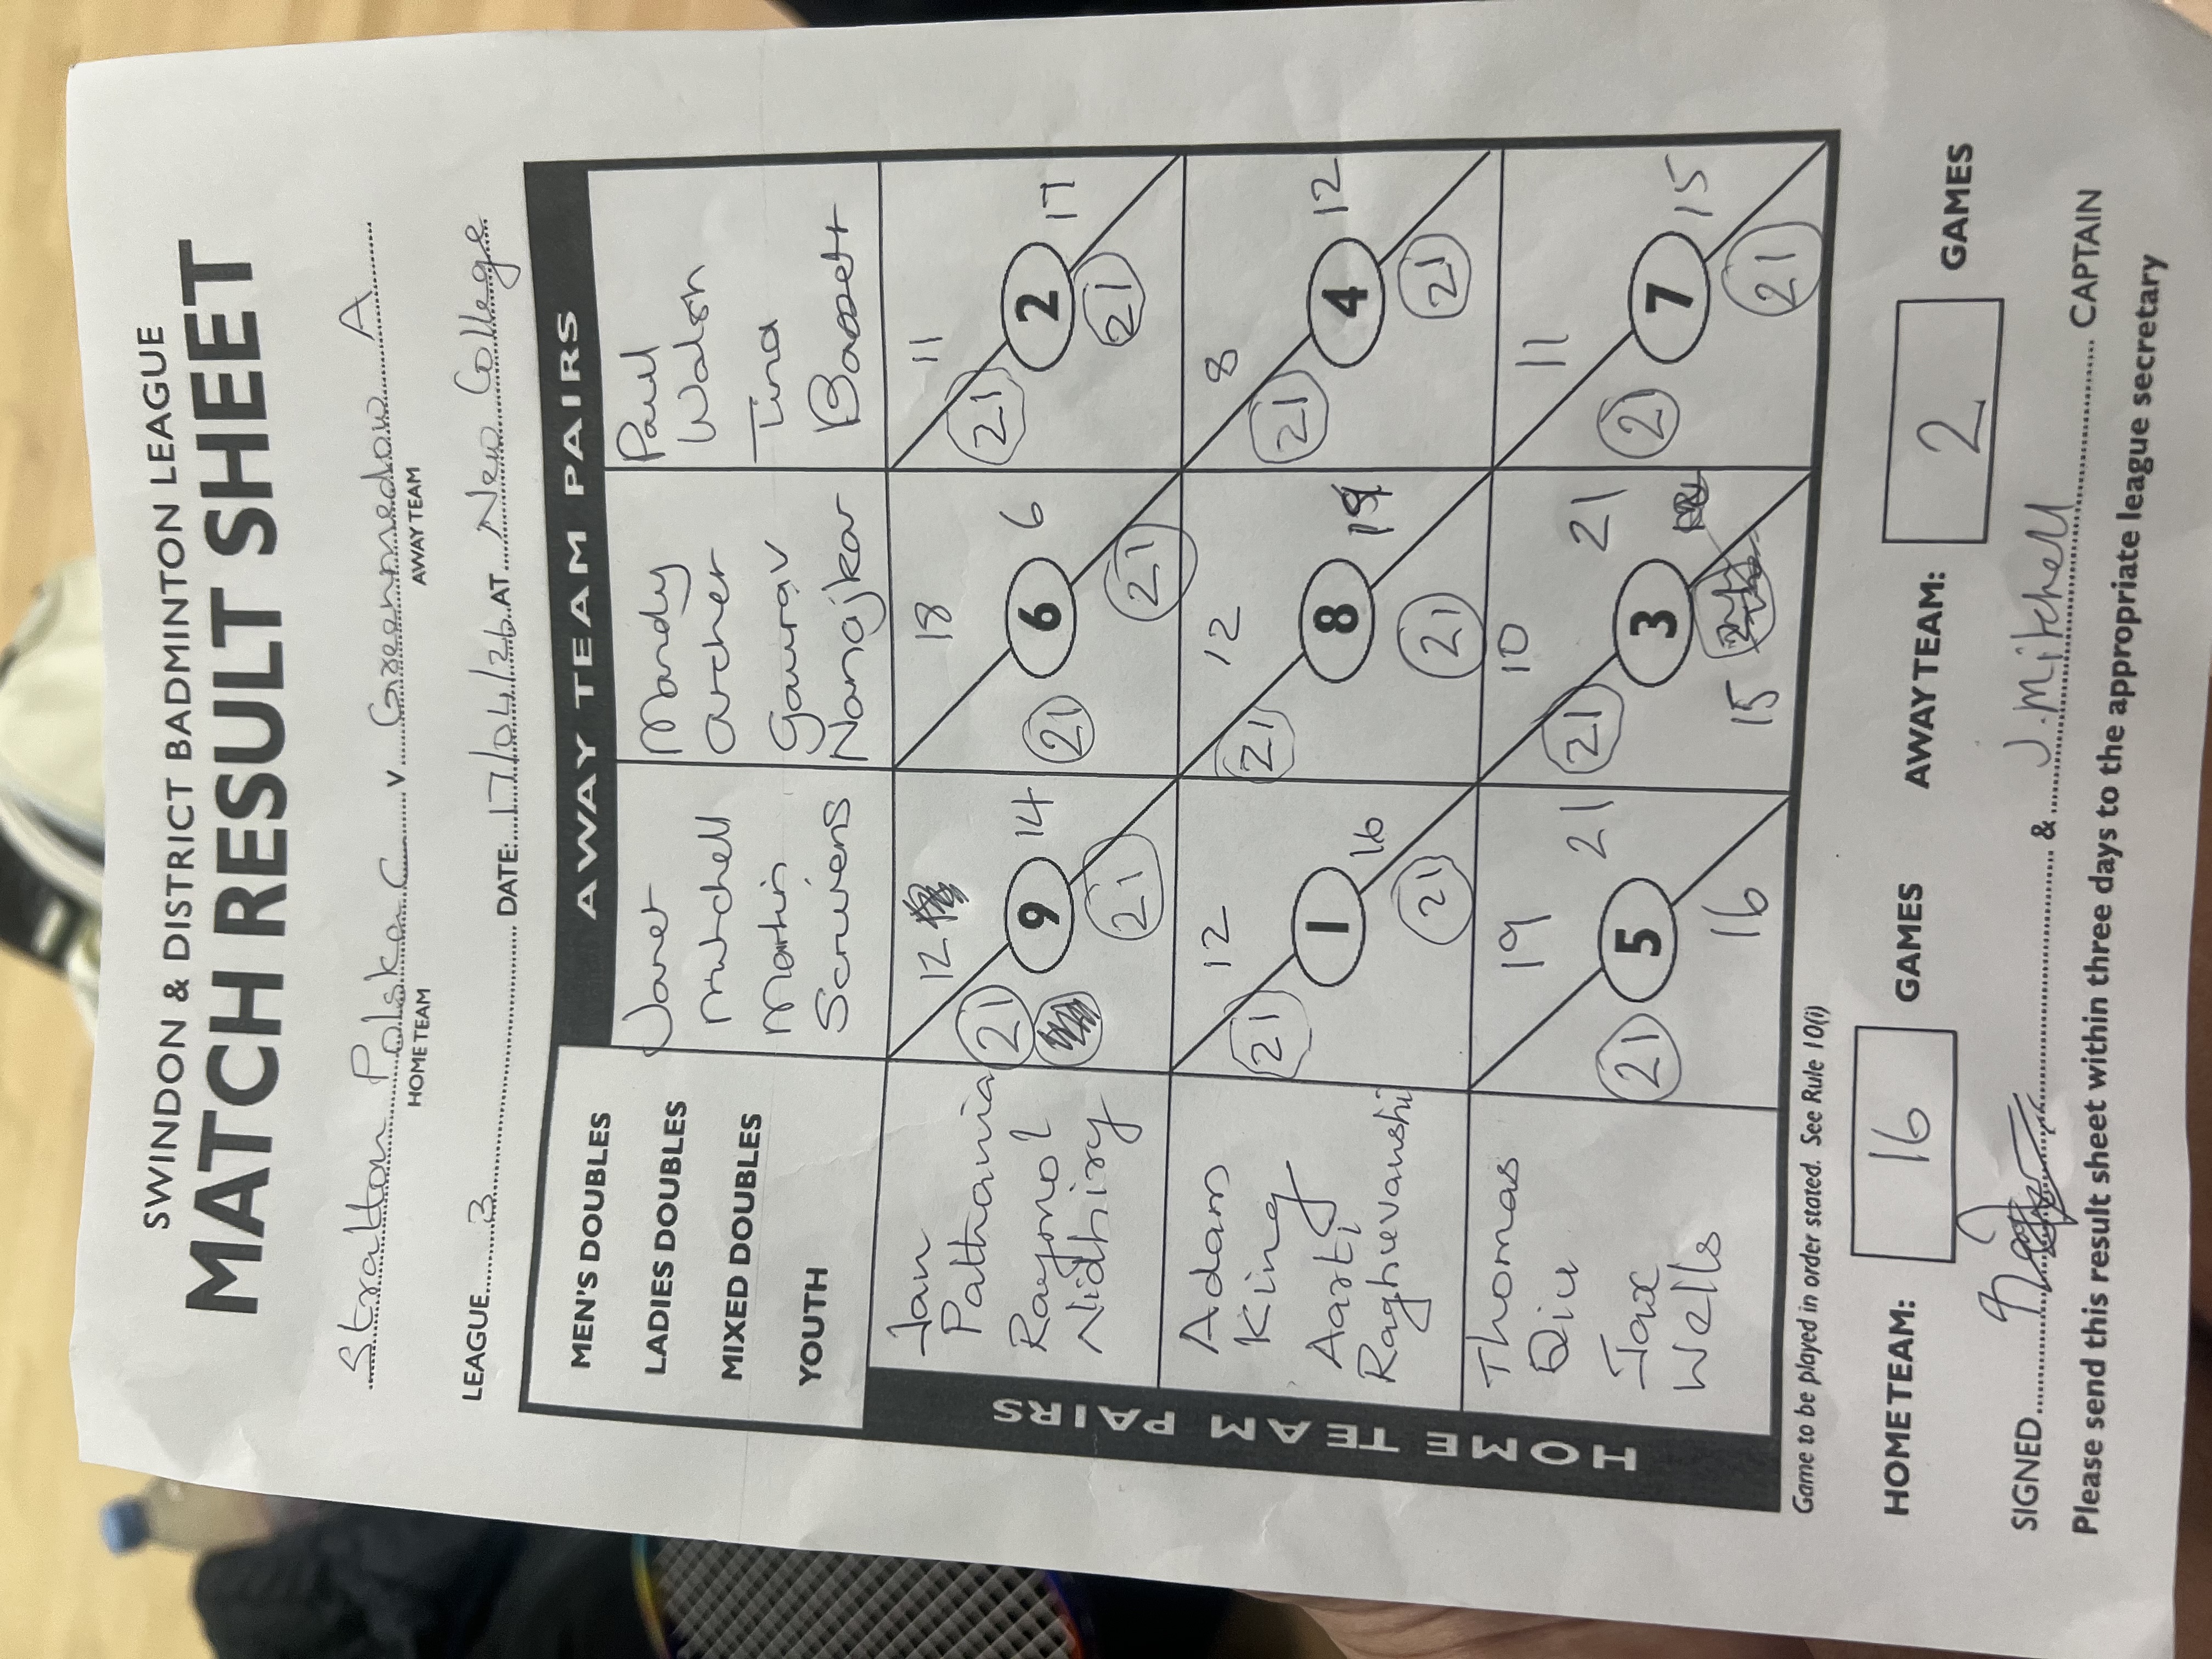 SWINDON & DISTRICT BADMINTON LEAGUE
MATCH RESULT SHEET
Stratton Polska C v Greenmeadow A
HOME TEAM AWAY TEAM
LEAGUE 3 DATE: 17/04/26 AT New College
AWAY TEAM PAIRS
MEN'S DOUBLES
LADIES DOUBLES
MIXED DOUBLES
YOUTH
Janet
Mitchell
Martin
Scrivens
Mandy
Archer
Gaurav
Narajkar
Paul
Walsh
Tina
Bassett
HOME TEAM PAIRS
Jan
Pathania
Raymol
Nidhiry
12
21 9 14
21
18
21 6 6
21
11
21 2 17
21
Adam
King
Aarti
Raghuvanshi
12
21 1 16
21
12
21 8
21
8
21 4 12
21
Thomas
Qiu
Jax
Wells
19
21 5 21
16
10
21 3 21
15
11
21 7 15
21
Game to be played in order stated. See Rule 10(i)
HOME TEAM: 16 GAMES AWAY TEAM: 2 GAMES
SIGNED & J. Mitchell CAPTAIN
Please send this result sheet within three days to the appropriate league secretary